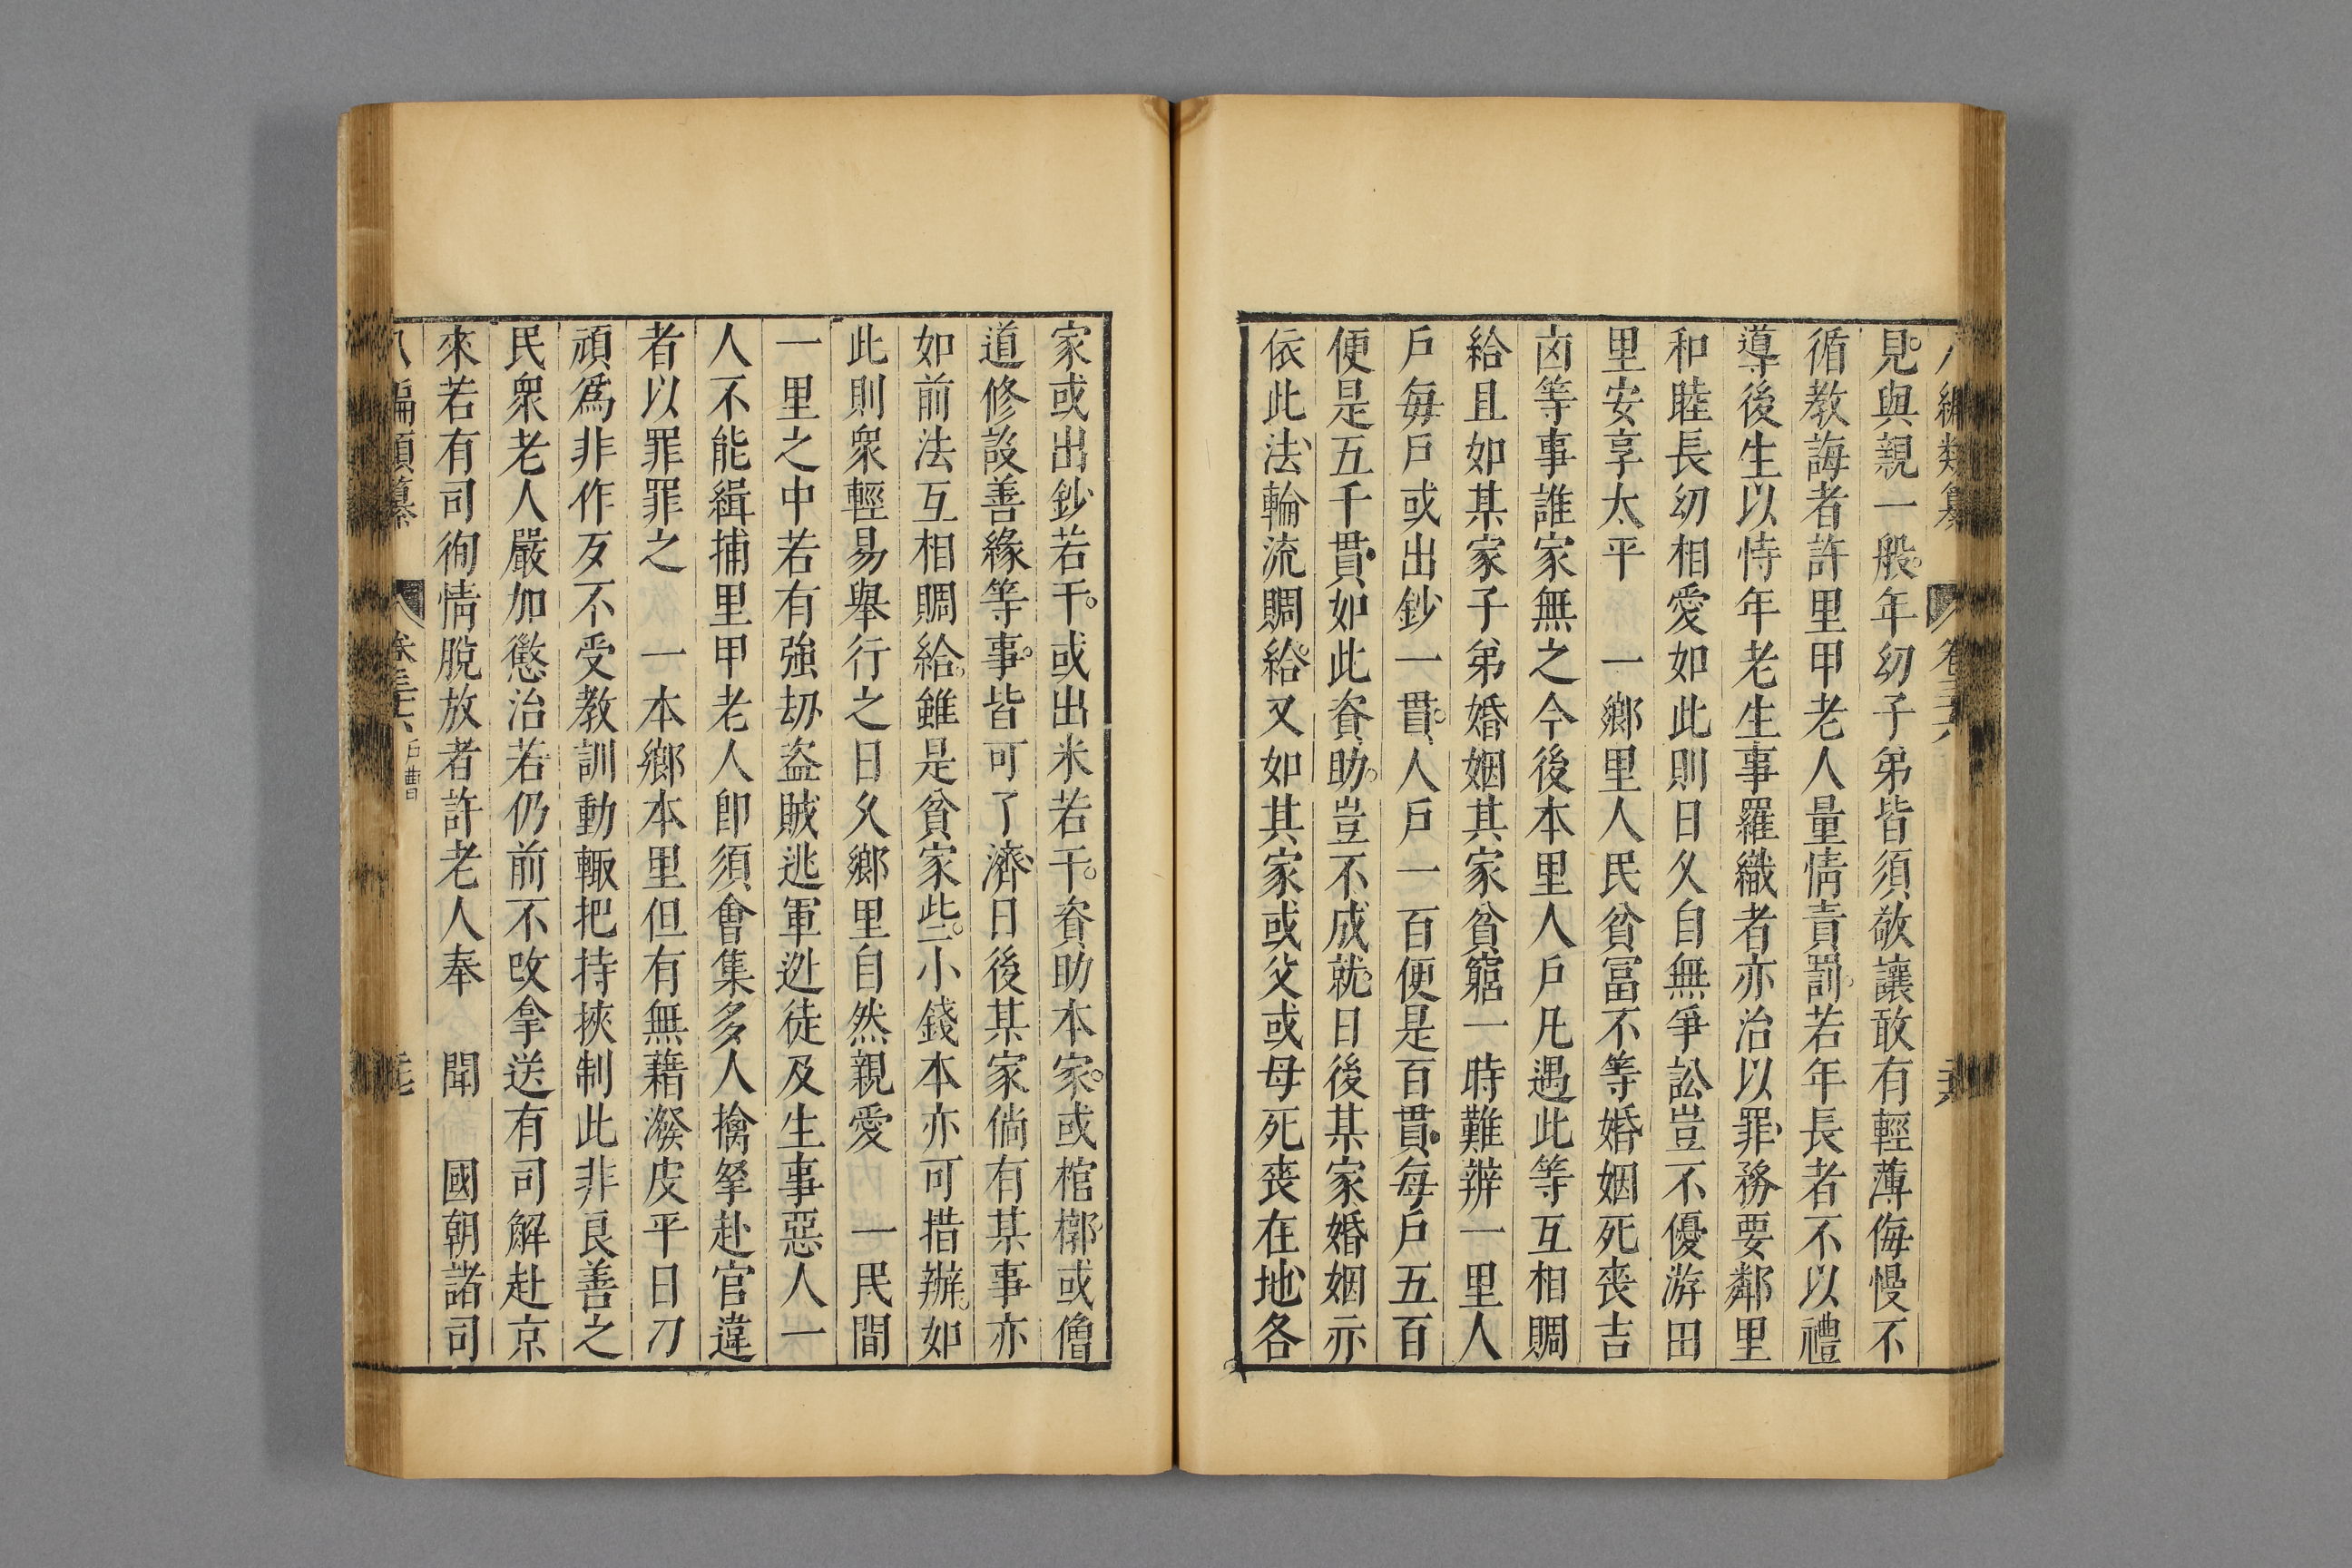 八編類纂 卷 六
見與親一般年幼子弟皆須敬讓敢有輕薄侮慢不
循教誨者許里甲老人量情責罰若年長者不以禮
導後生以恃年老生事羅織者亦治以罪務要鄰里
和睦長幼相愛如此則日久自無爭訟豈不優游田
里安享太平 一鄉里人民貧富不等婚姻死喪吉
凶等事誰家無之今後本里人戶凡遇此等互相賙
給且如某家子弟婚姻其家貧窮一時難辦一里人
戶每戶或出鈔一貫人戶一百便是百貫每戶五百
便是五千貫如此資助豈不成就日後某家婚姻亦
依此法輪流賙給又如其家或父或母死喪在地各
家或出鈔若干或出米若干資助本家或棺槨或僧
道修設善緣等事皆可了濟日後某家倘有某事亦
如前法互相賙給雖是貧家些小錢本亦可措辦如
此則衆輕易舉行之日久鄉里自然親愛 一民間
一里之中若有強劫盜賊逃軍迯徒及生事惡人一
人不能緝捕里甲老人卽須會集多人擒拏赴官違
者以罪罪之 一本鄉本里但有無藉潑皮平日刁
頑爲非作歹不受教訓動輒把持挾制此非良善之
民衆老人嚴加懲治若仍前不改拿送有司解赴京
來若有司徇情脫放者許老人奉 聞 國朝諸司
八編類纂 卷 戶曹